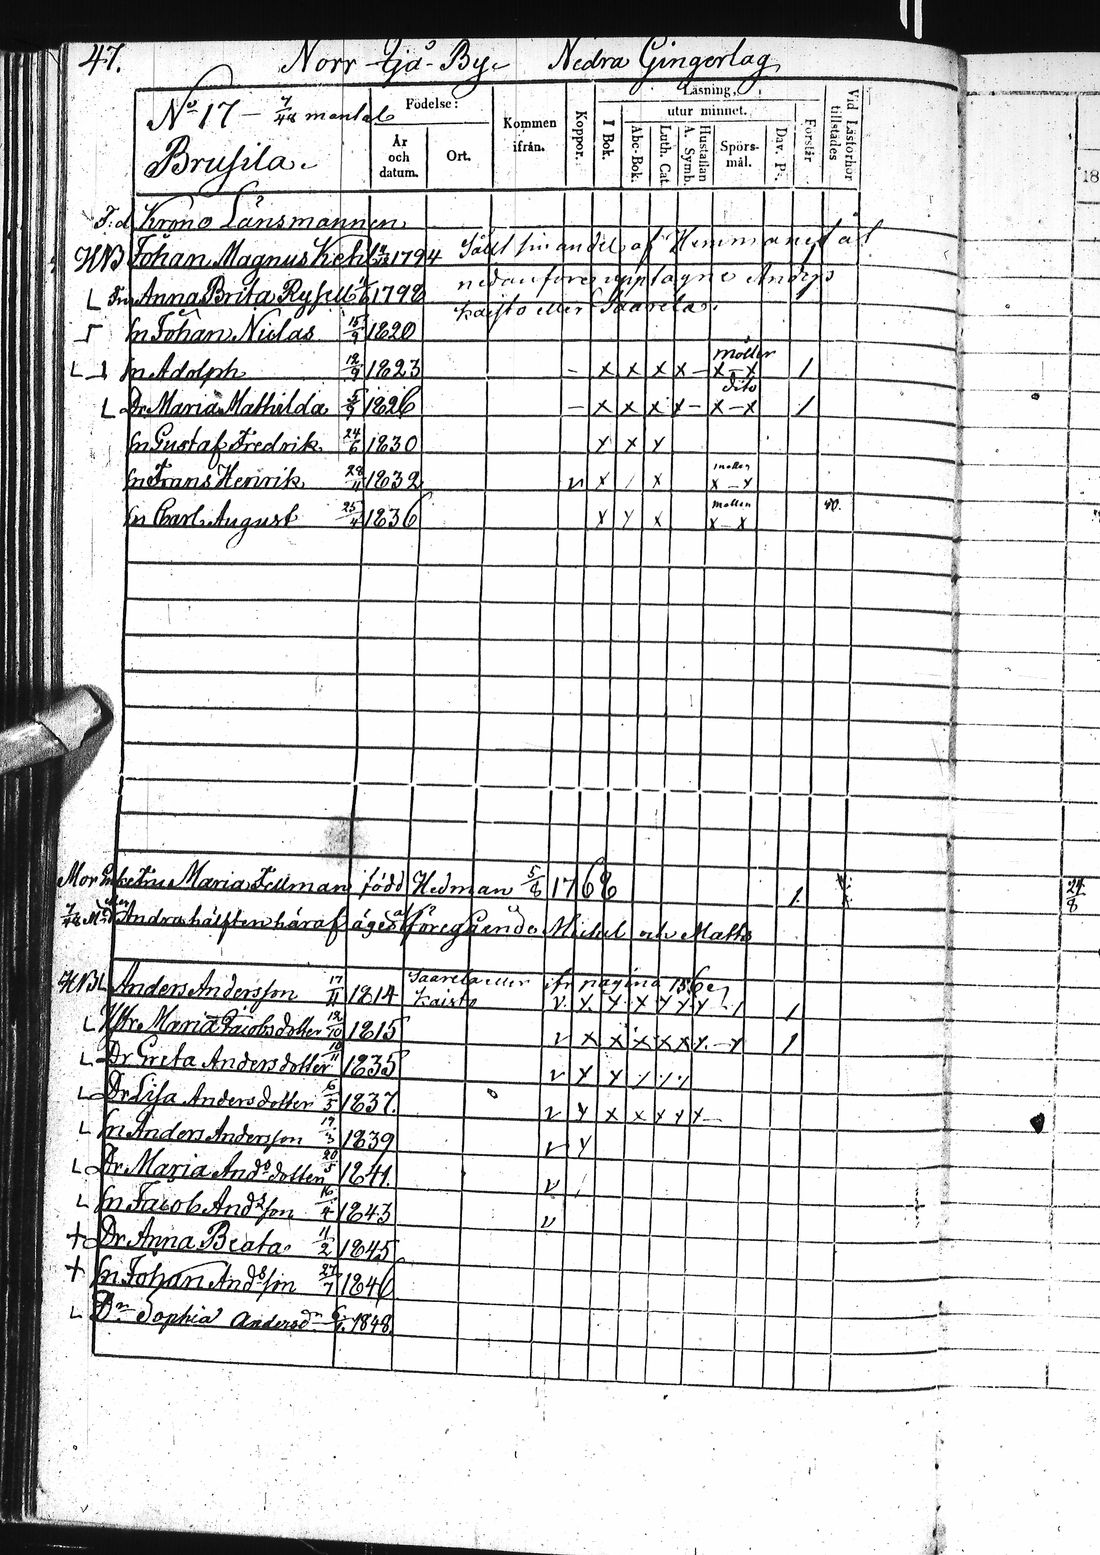 47. Norr Ijå By. Nedra Gingerlag
No 17 - 7/48 mantal
Brusila.
Födelse:
År och datum.
Ort.
Kommen ifrån.
Koppor.
Läsning,
I Bok.
utur minnet.
Abc-Bok.
Luth. Cat.
A. Symb.
Hustaflan
Spörsmål.
Dav. Ps.
Förstår
Vid Läsförhör tillstädes
F:d Krono Länsmannen
HB Johan Magnus 1794 Såldt sin andel af Hemmanet åt
L Anna Brita 1798 nedanföre upptagne Anders
Kaisto eller Saarela.
Sn Johan Niclas 15/9 1820
L Sn Adolph 12/9 1823 - x x x x - x - x 1
L Dr Maria Mathilda 5/9 1826 - x x x x - dito x - x 1
Sn Gustaf Fredrik 24/6 1830 x x x
Sn Frans Henrik 28/11 1832 v x / x x - x
Sn Carl August 25/4 1836 x x x x - x 40.
Mor Enkefru Maria Fellman född Hedman 5/8 1768 1.
7/48 Andra hälften häraf äges af föregående Michel och Matts
HB L Anders Andersson 17/11 1814 Saarela eller Kaisto ifr pagina 156 v. x x x x x x 1
L Hstr Maria Jacobsdotter 12/10 1815 v x x x x x x - x 1
L Dr Greta Andersdotter 10/11 1835 v x x / / /
L Dr Lisa Andersdotter 6/5 1837. v x x x x x x -
L Sn Anders Andersson 19/3 1839 v x
L Dr Maria Andsdotter 20/5 1841. v /
L Sn Jacob Andsson 16/4 1843 v
+ Dr Anna Beata 11/2 1845
+ Sn Johan Andsson 27/7 1846
L Dr Sophia Andersdr 1848
24/8